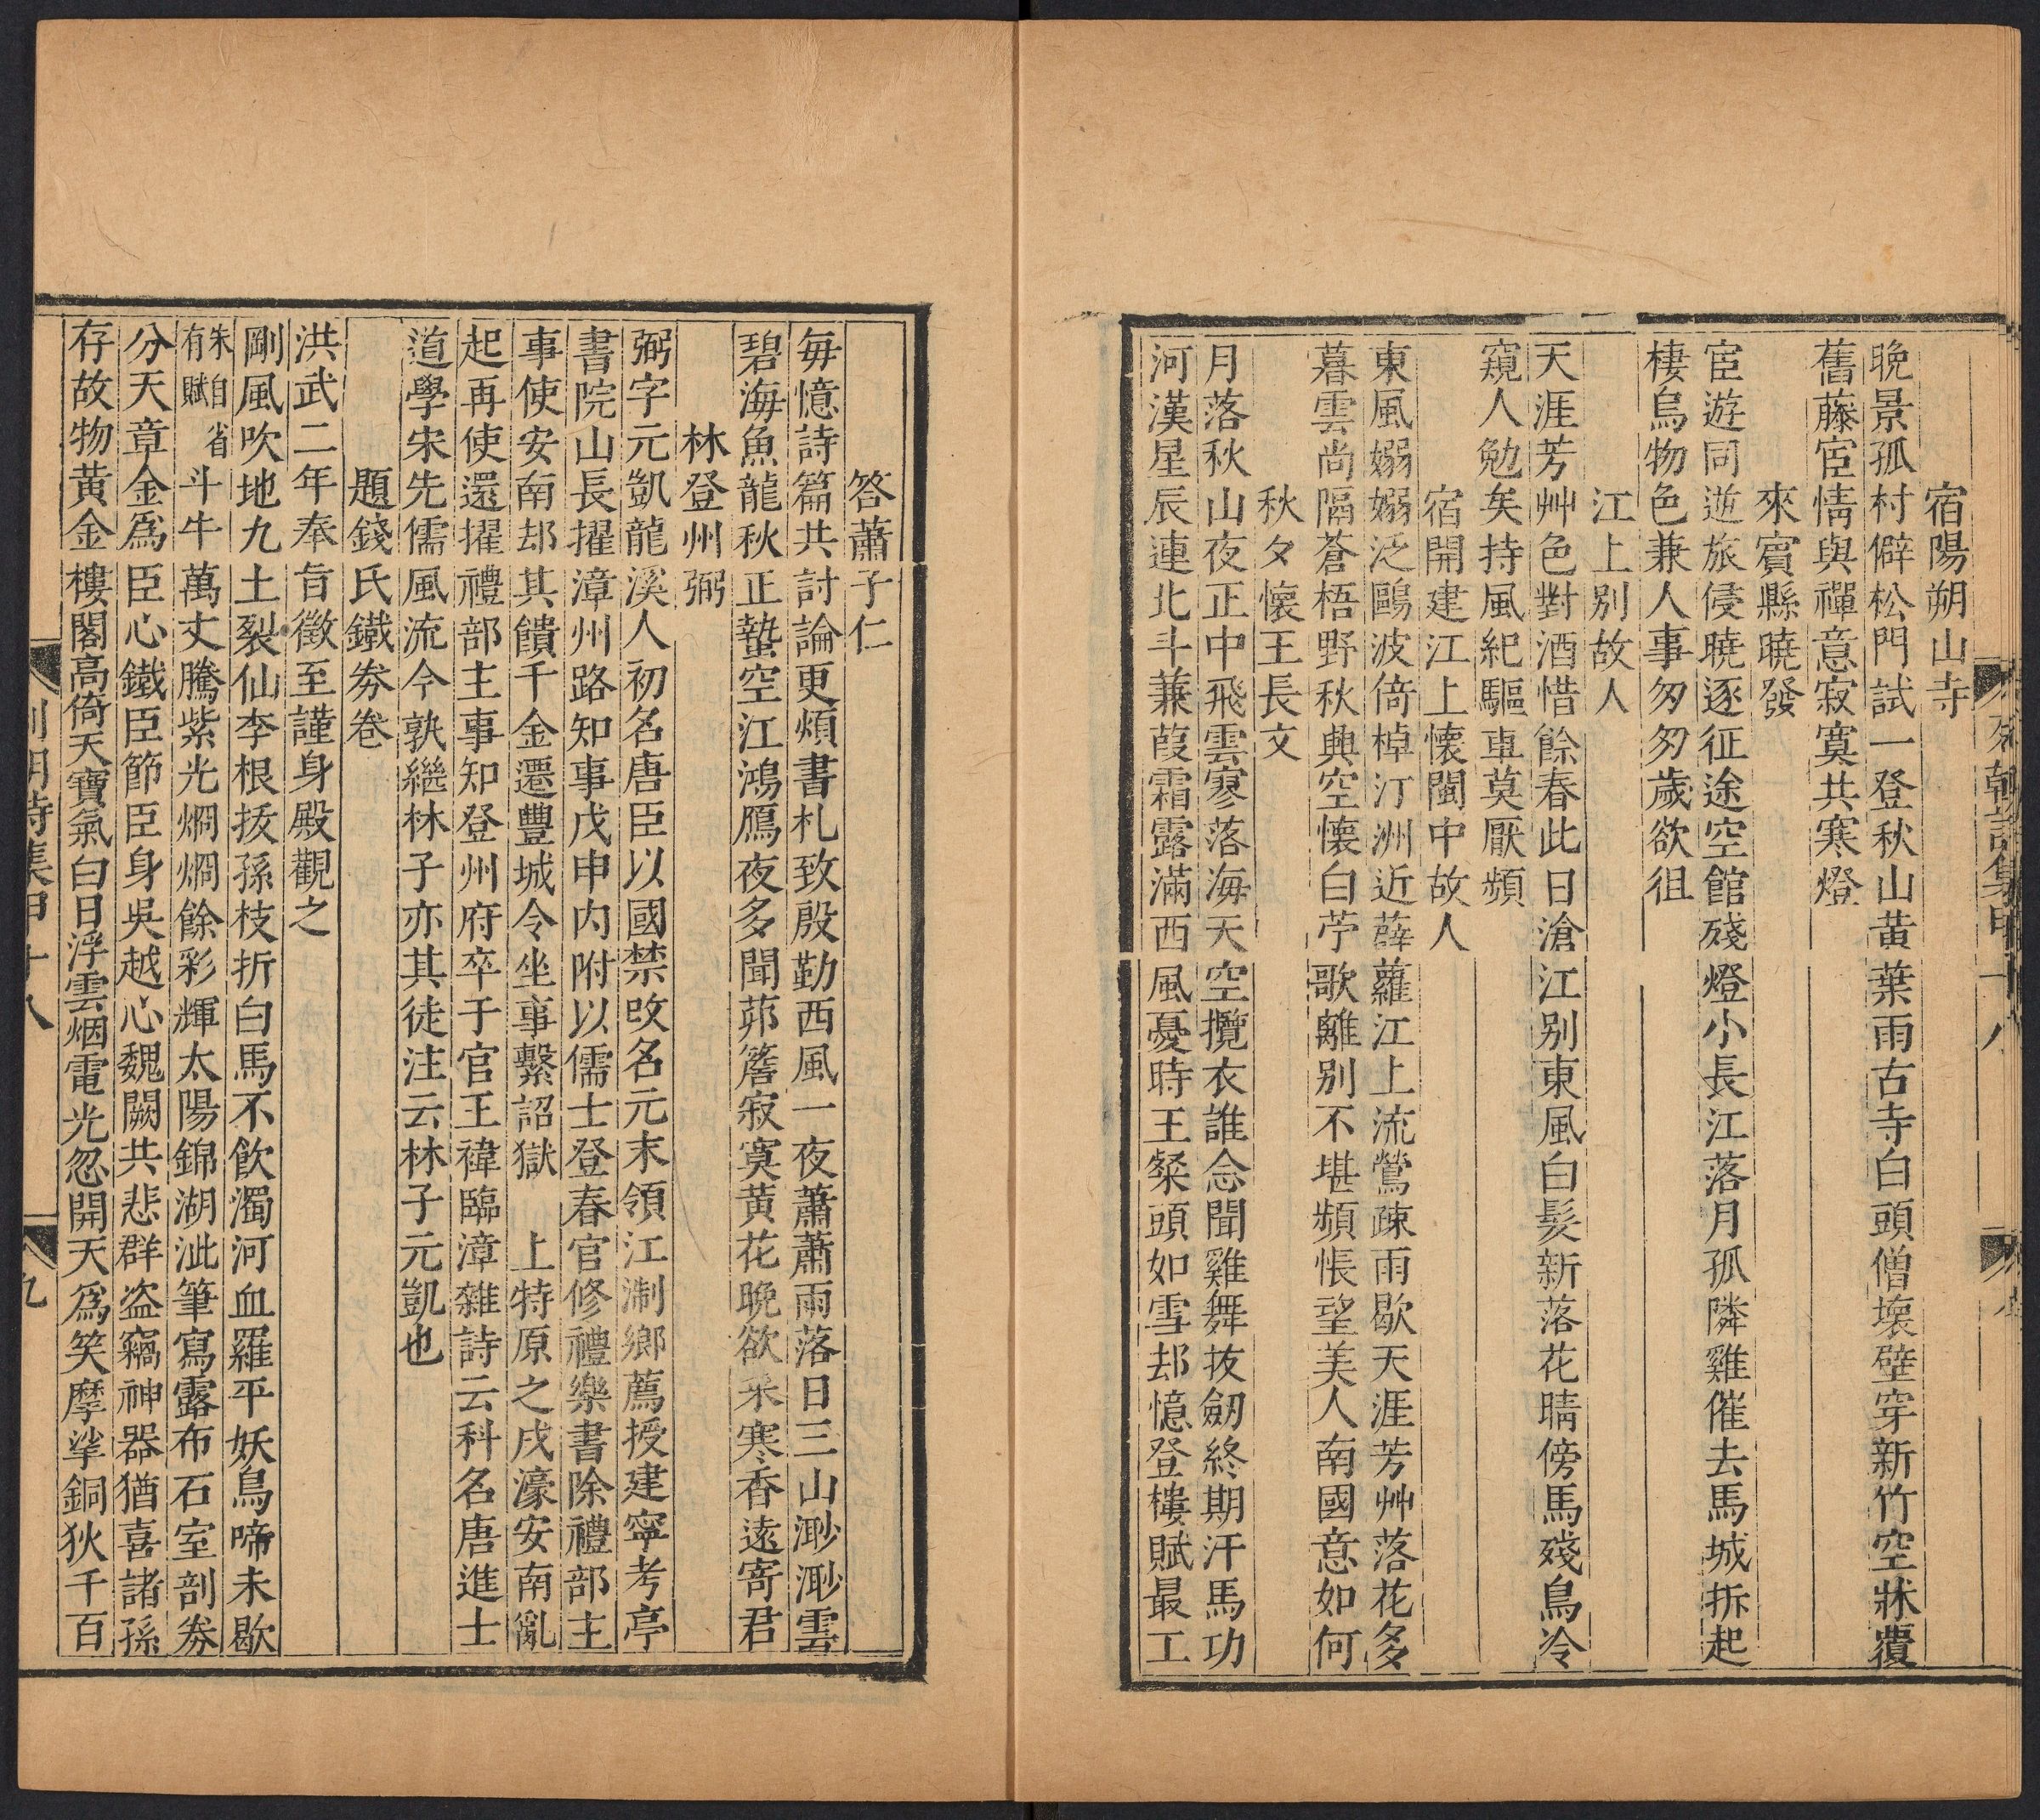 宿陽朔山寺
晚景孤村僻松門試一登秋山黃葉雨古寺白頭僧壞壁穿新竹空牀覆
舊藤宦情與禪意寂寞共寒燈
來賓縣曉發
宦遊同逆旅侵曉逐征途空館殘燈小長江落月孤隣雞催去馬城拆起
棲烏物色兼人事匆匆歲欲徂
江上別故人
天涯芳艸色對酒惜餘春此日滄江别東風白髮新落花晴傍馬殘鳥冷
窺人勉矣持風紀驅車莫厭頻
宿開建江上懷閩中故人
東風嫋嫋泛鷗波倚棹汀洲近薜蘿江上流鶯疎雨歇天涯芳艸落花多
暮雲尚隔蒼梧野秋興空懷白苧歌離別不堪頻悵望美人南國意如何
秋夕懷王長文
月落秋山夜正中飛雲寥落海天空攬衣誰念聞雞舞抜劒終期汗馬功
河漢星辰連北斗蒹葭霜露滿西風憂時王粲頭如雪却憶登樓賦最工
答蕭子仁
每憶詩篇共討論更煩書札致殷勤西風一夜蕭蕭雨落日三山渺渺雲
碧海魚龍秋正蟄空江鴻鴈夜多聞茆簷寂寞黃花晚欲采寒香遠寄君
林登州弼
弼字元凱龍溪人初名唐臣以國禁改名元末領江淛鄉薦授建寧考亭
書院山長擢漳州路知事戊申内附以儒士登春官修禮樂書除禮部主
事使安南却其饋千金遷豐城令坐事繫詔獄 上特原之戍濠安南亂
起再使還擢禮部主事知登州府卒于官王禕臨漳雜詩云科名唐進士
道學宋先儒風流今孰繼林子亦其徒注云林子元凱也
題錢氏鐵券卷
洪武二年奉旨徵至謹身殿觀之
剛風吹地九土裂仙李根拔孫枝折白馬不飲濁河血羅平妖鳥啼未歇
朱自省有賦斗牛萬丈騰紫光烱烱餘彩輝太陽錦湖泚筆寫露布石室剖券
分天章金爲臣心鐵臣節臣身吳越心魏闕共悲群盗竊神器猶喜諸孫
存故物黃金樓閣高倚天寶氣白日浮雲烟電光忽開天爲笑摩挲銅狄千百
列朝詩集甲十八
九